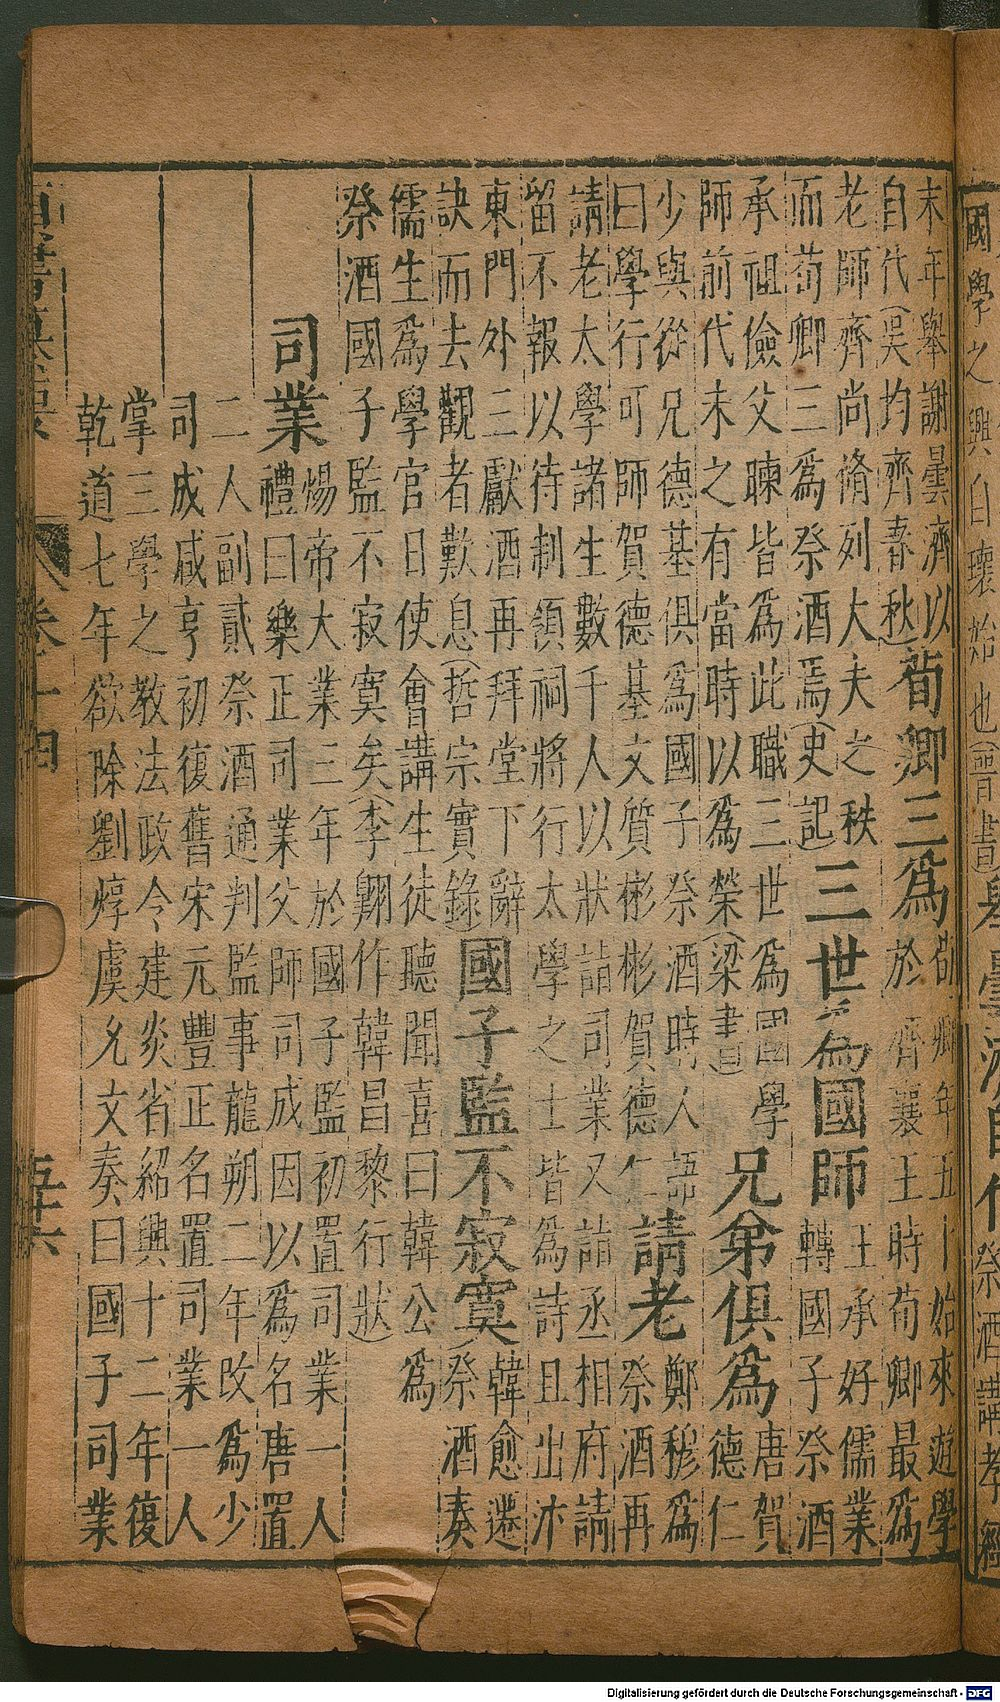 國學之興自壞始也(晉書)
祭酒講孝經
末年舉謝曇濟以
自代(吳均齊春秋)
荀卿三為
卿年五十始來遊學
於齊襄王時荀卿最為
老師齊尚脩列大夫之秩
而荀卿三為祭酒焉(史記)
三世為國師
王承好儒業
轉國子祭酒
承祖儉父暕皆為此職三世為國學
師前代未之有當時以為榮(梁書)
兄弟俱為
唐賀
德仁
少與從兄德基俱為國子祭酒時人語
曰學行可師賀德基文質彬彬賀德仁
請老
鄭穆為
祭酒再
請老太學諸生數千人以狀詣司業又詣丞相府請
留不報以待制領祠將行太學之士皆為詩且出沭
東門外三獻酒再拜堂下辭
訣而去觀者歎息(哲宗實錄)
國子監不寂寞
韓愈遷
祭酒奏
儒生為學官日使會講生徒聽聞喜曰韓公為
祭酒國子監不寂寞矣(李翱作韓昌黎行狀)
司業
煬帝大業三年於國子監初置司業一人
禮曰樂正司業父師司成因以為名唐置
二人副貳祭酒通判監事龍朔二年改為少
司成咸亨初復舊宋元豐正名置司業一人
掌三學之教法政令建炎省紹興十二年復
乾道七年欲除劉焞虞允文奏曰國子司業
卷十四
五十六
Digitalisierung gefördert durch die Deutsche Forschungsgemeinschaft - DFG